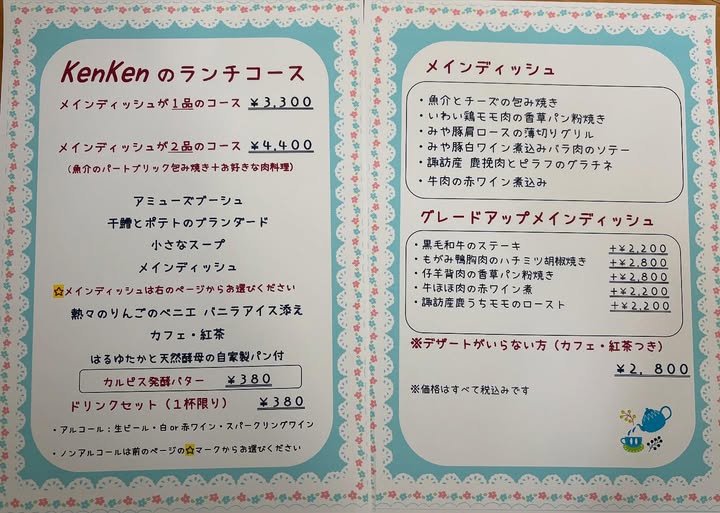 KenKen のランチコース
メインディッシュが1品のコース ￥3,300
メインディッシュが2品のコース ￥4,400
(魚介のパートブリック包み焼き+お好きな肉料理)
アミューズブーシュ
干鱈とポテトのブランダード
小さなスープ
メインディッシュ
☆メインディッシュは右のページからお選びください
熱々のりんごのベニエ バニラアイス添え
カフェ・紅茶
はるゆたかと天然酵母の自家製パン付
カルピス発酵バター ￥380
ドリンクセット(1杯限り) ￥380
・アルコール:生ビール・白or赤ワイン・スパークリングワイン
・ノンアルコールは前のページの☆マークからお選びください
メインディッシュ
・魚介とチーズの包み焼き
・いわい鶏モモ肉の香草パン粉焼き
・みや豚肩ロースの薄切りグリル
・みや豚白ワイン煮込みバラ肉のソテー
・諏訪産 鹿挽肉とピラフのグラチネ
・牛肉の赤ワイン煮込み
グレードアップメインディッシュ
・黒毛和牛のステーキ +￥2,200
・もがみ鴨胸肉のハチミツ胡椒焼き +￥2,800
・仔羊背肉の香草パン粉焼き +￥2,800
・牛ほほ肉の赤ワイン煮 +￥2,200
・諏訪産鹿うちモモのロースト +￥2,200
※デザートがいらない方(カフェ・紅茶つき)
￥2,800
※価格はすべて税込みです